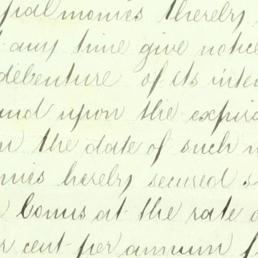 monies thereby
any time give notice
debenture of its inten
and upon the expira
the date of such n
monies hereby secured s
bonus at the rate o
cent per annum f